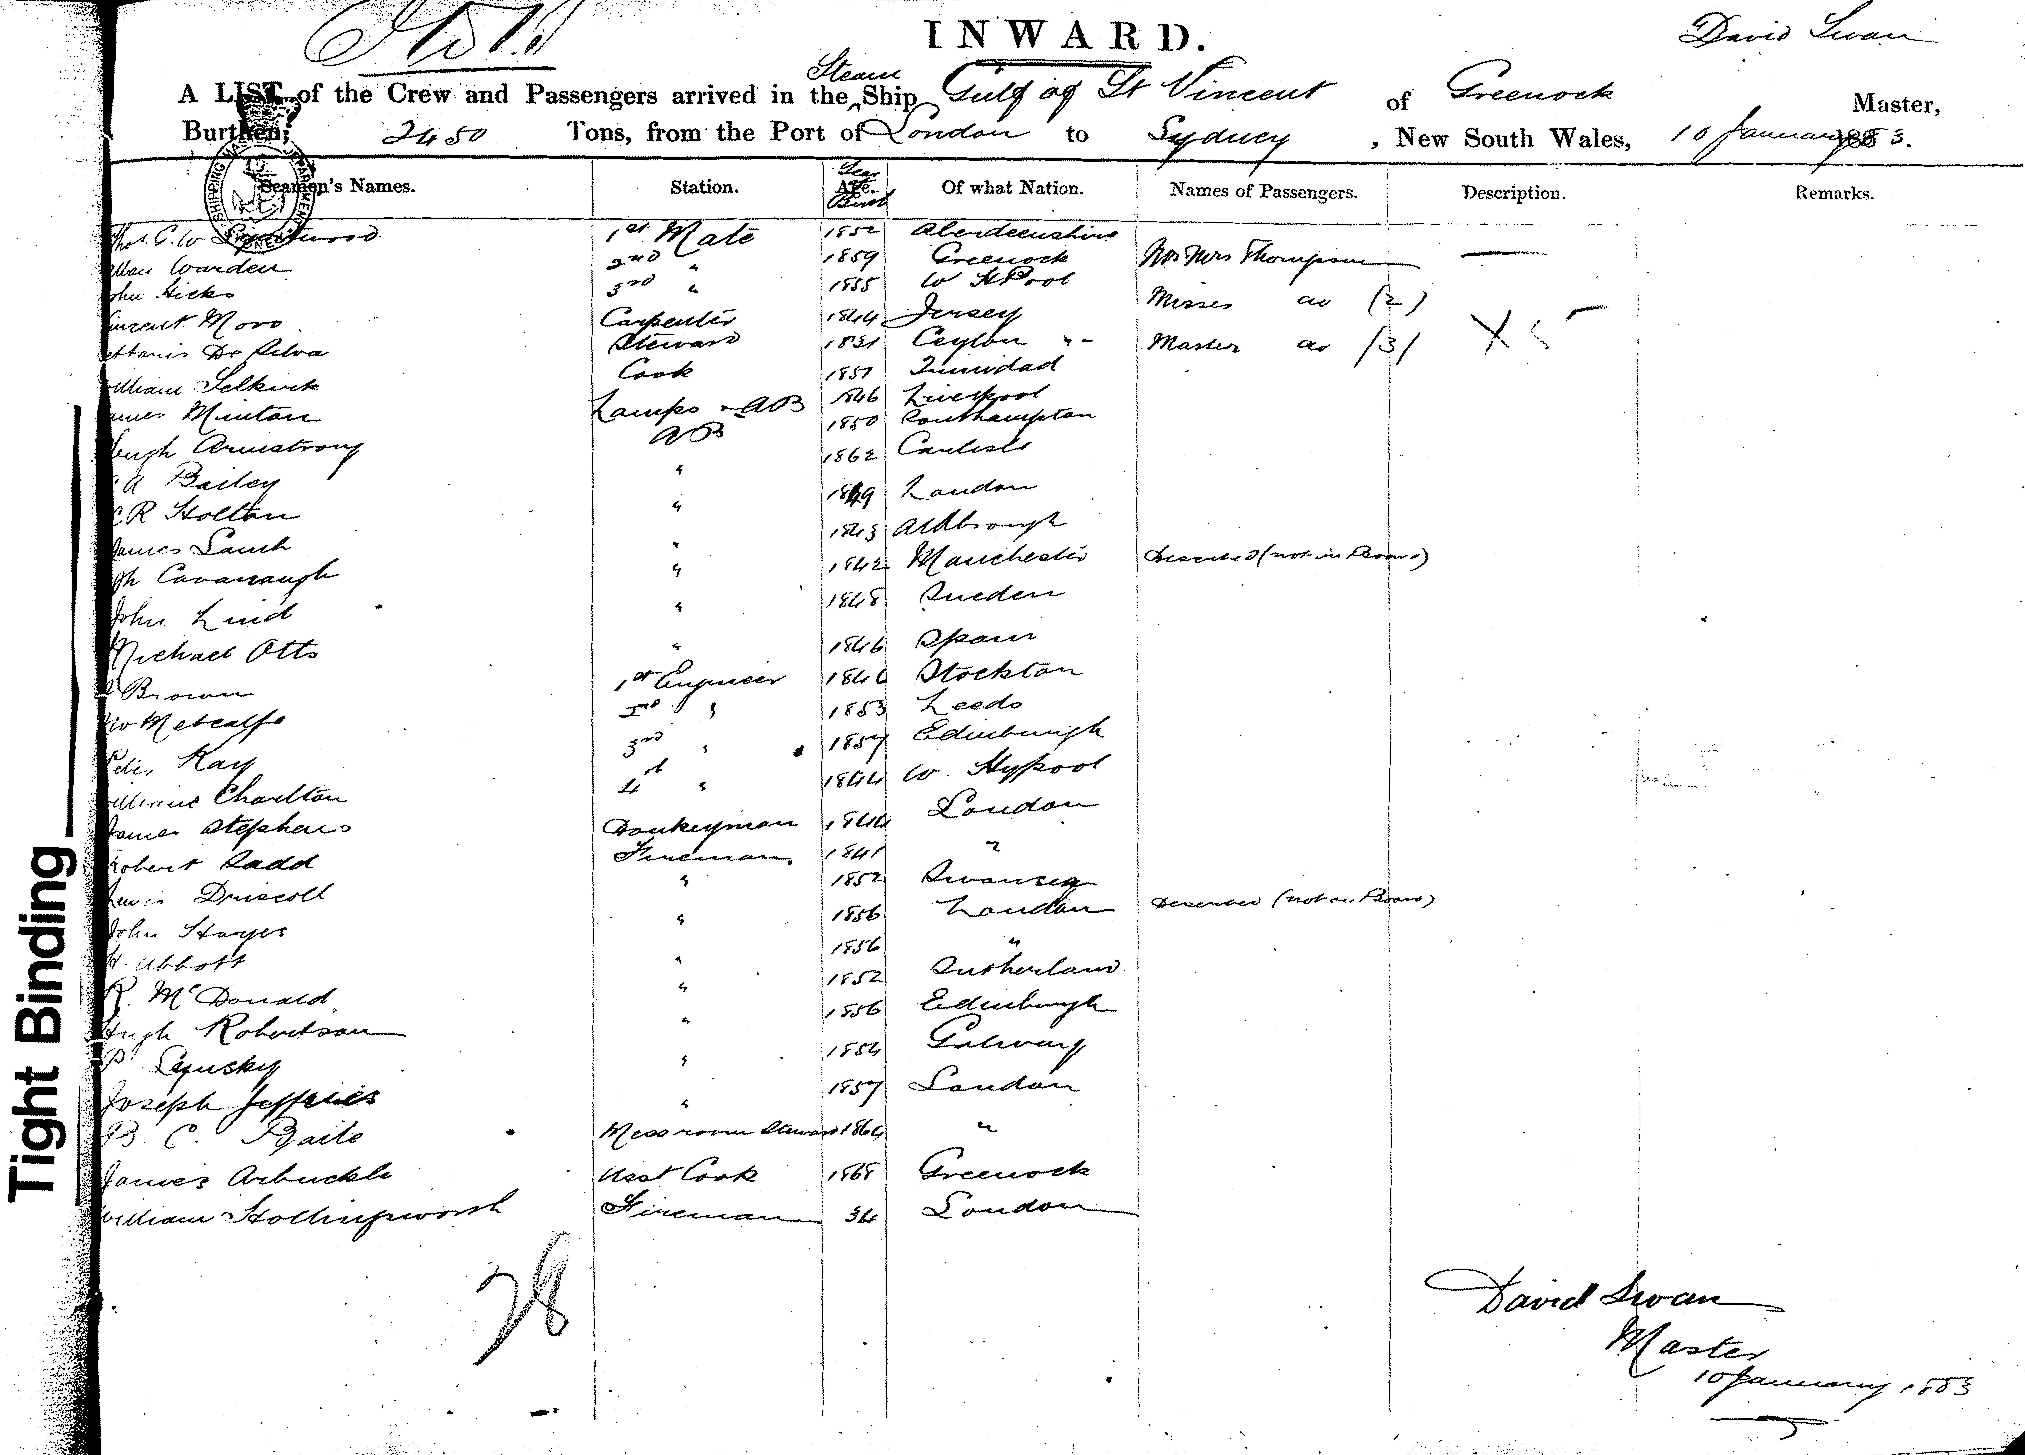 INWARD.
David Swan
A LIST of the Crew and Passengers arrived in the Steam Ship Gulf of St Vincent of Greenock Master,
Burthen, 2450 Tons, from the Port of London to Sydney, New South Wales, 10 January 1883.
Seamen's Names. Station. Year of Birth Of what Nation. Names of Passengers. Description. Remarks.
1st Mate 1852 Aberdeenshire
Warden 2nd " 1859 Greenock Mr & Mrs Thompson —
John Hicks 3rd " 1855 W HPool
Vincent Moro Carpenter 1844 Jersey Misses do (2)
De Silva Steward 1831 Ceylon Master do (3)
William Selkirk Cook 1857 Trinidad
James Minton Lamps & AB 1846 Liverpool
Hugh Armstrong AB 1850 Southampton
Bailey " 1862 Carlisle
R Holton " 1849 London
James Lamb " 1843 Aldbrough
Cavanaugh " 1842 Manchester Deserted (not on Board)
John Lind " 1848 Sweden
Michael Otto " 1846 Spain
Brown 1st Engineer 1846 Stockton
Metcalfe 2nd " 1853 Leeds
Peter Kay 3rd " 1857 Edinburgh
William Charlton 4th " 1844 W. Hypool
James Stephens Donkeyman 1844 London
Robert Ladd Fireman 1841 "
Lewis Driscoll " 1852 Swansea
John Hayes " 1856 London Deserted (not on Board)
H. Abbott " 1856 "
R. McDonald " 1852 Sutherland
Hugh Robertson " 1856 Edinburgh
P Lynsky " 1854 Galway
Joseph Jefferies " 1857 London
B. C. Baile Messroom Steward 1864 "
James Arbuckle Asst Cook 1868 Greenock
William Hollingsworth Fireman 34 London
28
David Swan
Master
10 January 1883
Tight Binding